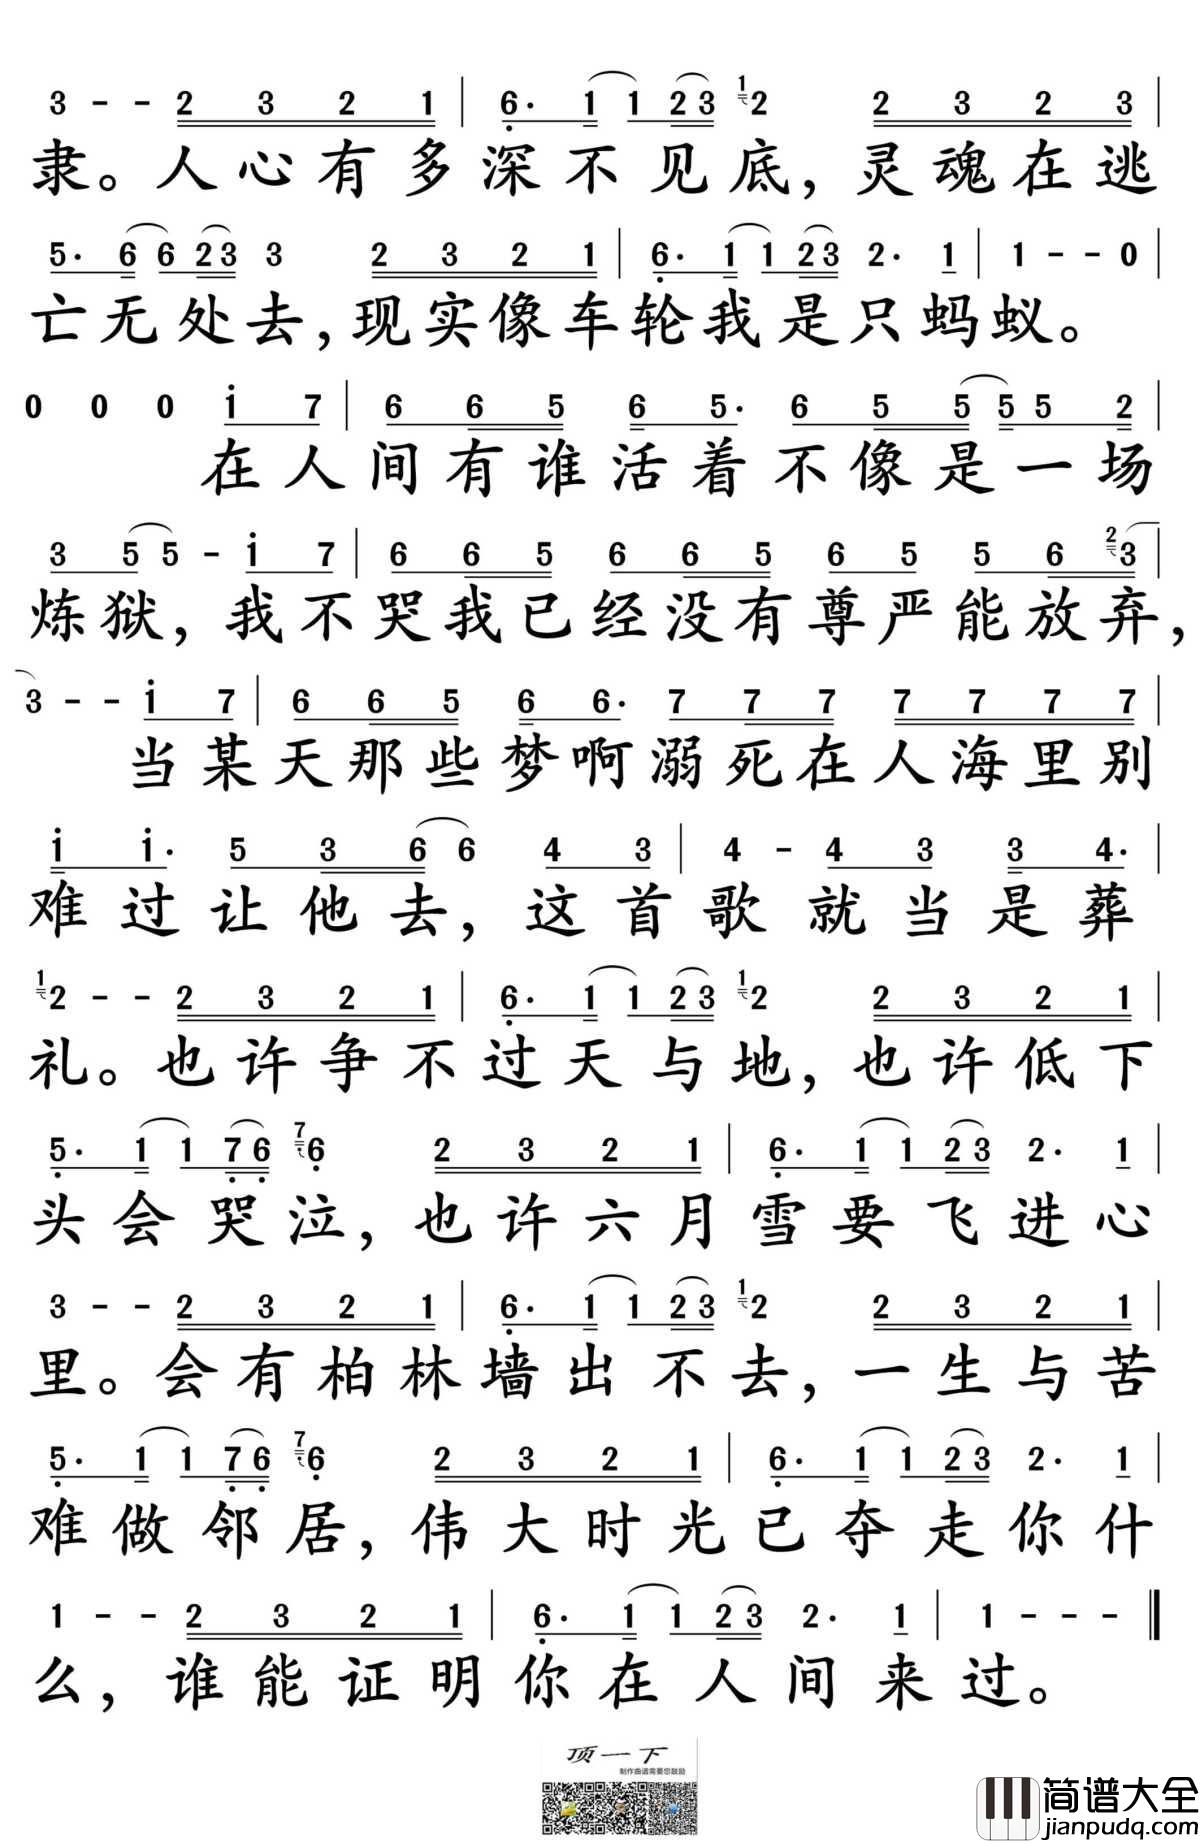 3 - - 2 3 2 1 | 6· 1 1 2 3 1 2 2 3 2 3 |
隶。人心有多深不见底，灵魂在逃
5· 6 6 2 3 3 2 3 2 1 | 6· 1 1 2 3 2· 1 | 1 - - 0 |
亡无处去，现实像车轮我是只蚂蚁。
0 0 0 1 7 | 6 6 5 6 5· 6 5 5 5 5 2 |
在人间有谁活着不像是一场
3 5 5 - 1 7 | 6 6 5 6 6 5 6 5 5 6 2 3 |
炼狱，我不哭我已经没有尊严能放弃，
3 - - 1 7 | 6 6 5 6 6· 7 7 7 7 7 7 7 |
当某天那些梦啊溺死在人海里别
1 1· 5 3 6 6 4 3 | 4 - 4 3 3 4· |
难过让他去，这首歌就当是葬
1 2 - - 2 3 2 1 | 6· 1 1 2 3 1 2 2 3 2 1 |
礼。也许争不过天与地，也许低下
5· 1 1 7 6 7 6 2 3 2 1 | 6· 1 1 2 3 2· 1 |
头会哭泣，也许六月雪要飞进心
3 - - 2 3 2 1 | 6· 1 1 2 3 1 2 2 3 2 1 |
里。会有柏林墙出不去，一生与苦
5· 1 1 7 6 7 6 2 3 2 1 | 6· 1 1 2 3 2· 1 |
难做邻居，伟大时光已夺走你什
1 - - 2 3 2 1 | 6· 1 1 2 3 2· 1 | 1 - - - ‖
么，谁能证明你在人间来过。
顶一下
制作曲谱需要您鼓励
简谱大全
jianpudq.com